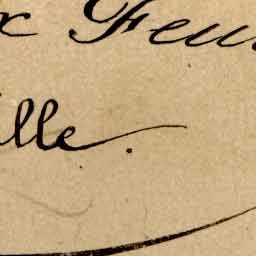 x Feu
ille.